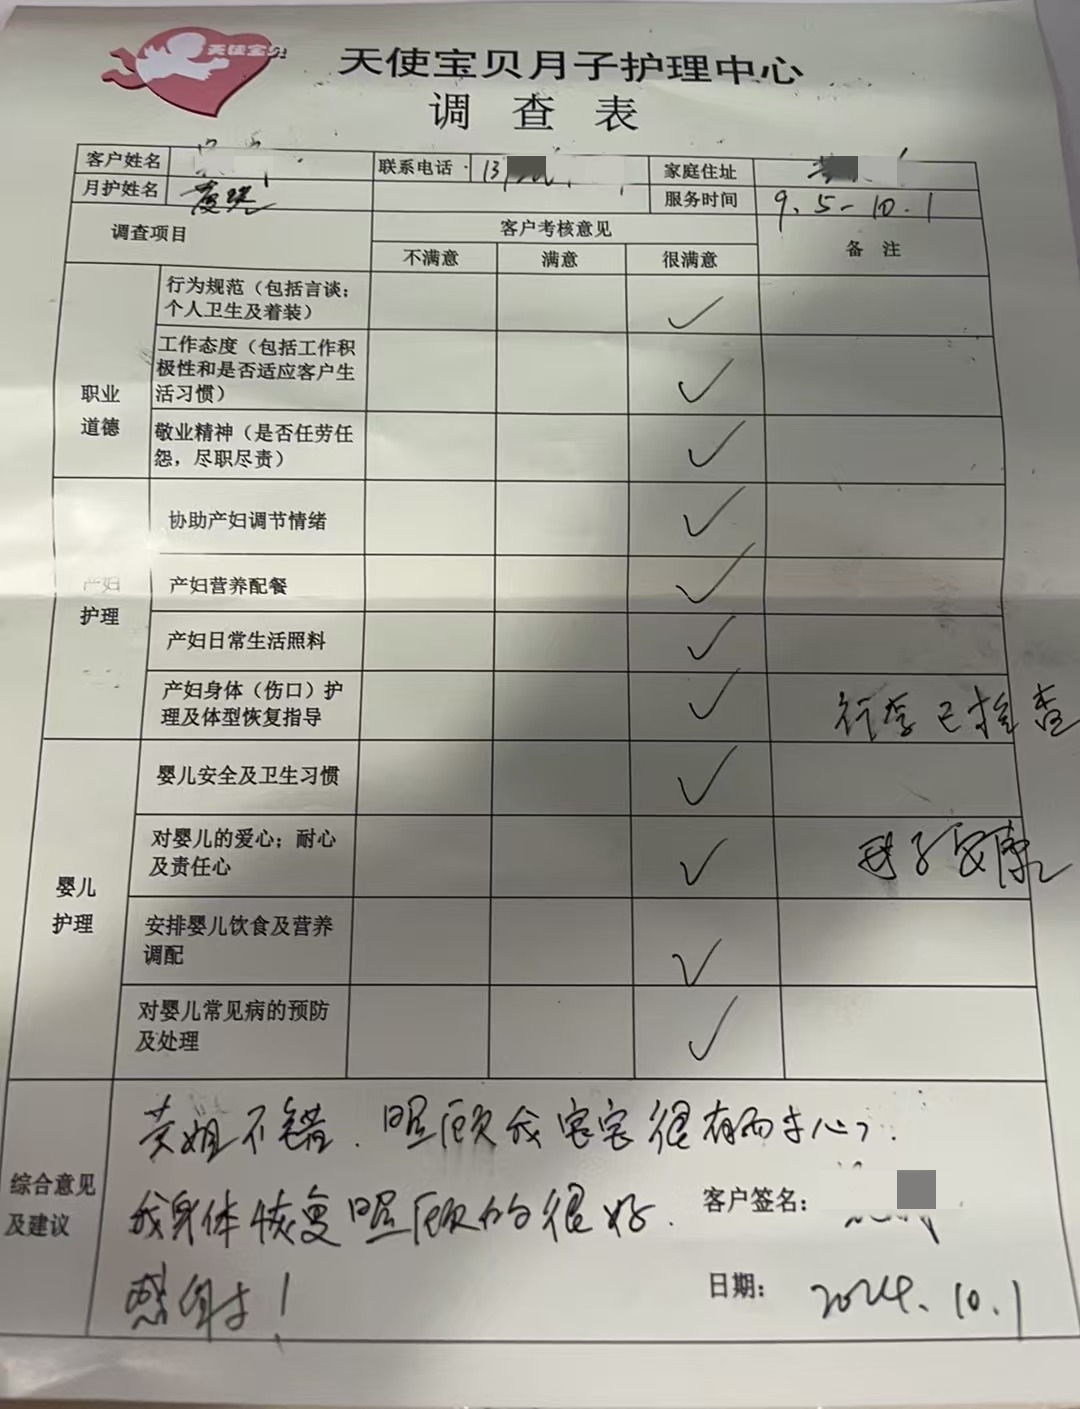 天使宝贝
天使宝贝月子护理中心
调查表
客户姓名 联系电话 13 家庭住址
月护姓名 服务时间 9.5-10.1
调查项目 客户考核意见 备 注
不满意 满意 很满意
职业
道德
行为规范（包括言谈；
个人卫生及着装） ✓
工作态度（包括工作积
极性和是否适应客户生
活习惯） ✓
敬业精神（是否任劳任
怨，尽职尽责） ✓
产妇
护理
协助产妇调节情绪 ✓
产妇营养配餐 ✓
产妇日常生活照料 ✓
产妇身体（伤口）护
理及体型恢复指导 ✓
行李已检查
婴儿
护理
婴儿安全及卫生习惯 ✓
对婴儿的爱心；耐心
及责任心 ✓
母子安康
安排婴儿饮食及营养
调配 ✓
对婴儿常见病的预防
及处理 ✓
综合意见
及建议
黄姐不错、照顾我宝宝很有耐心，
我身体恢复照顾的很好.
感谢！
客户签名：
日期： 2024.10.1